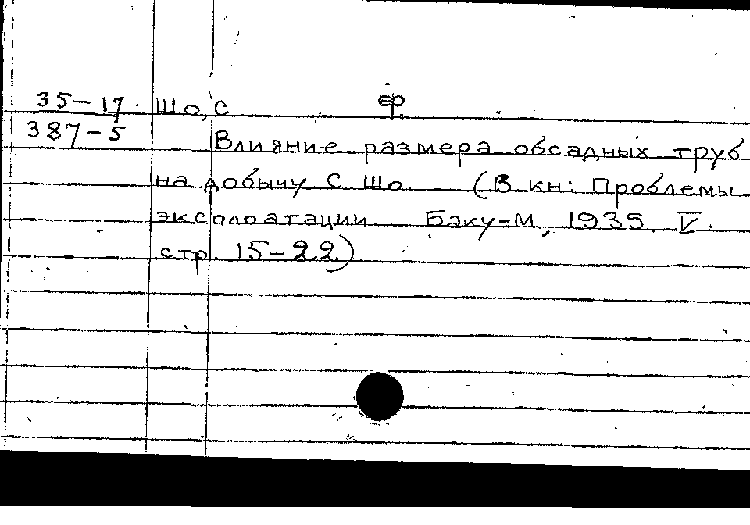 35-17 Шо, С ер.
387-5 Влияние размера обсадных труб
на добычу С. Шо. (В кн: Проблемы
эксплоатации Баку-М, 1935. V.
стр 15-22)